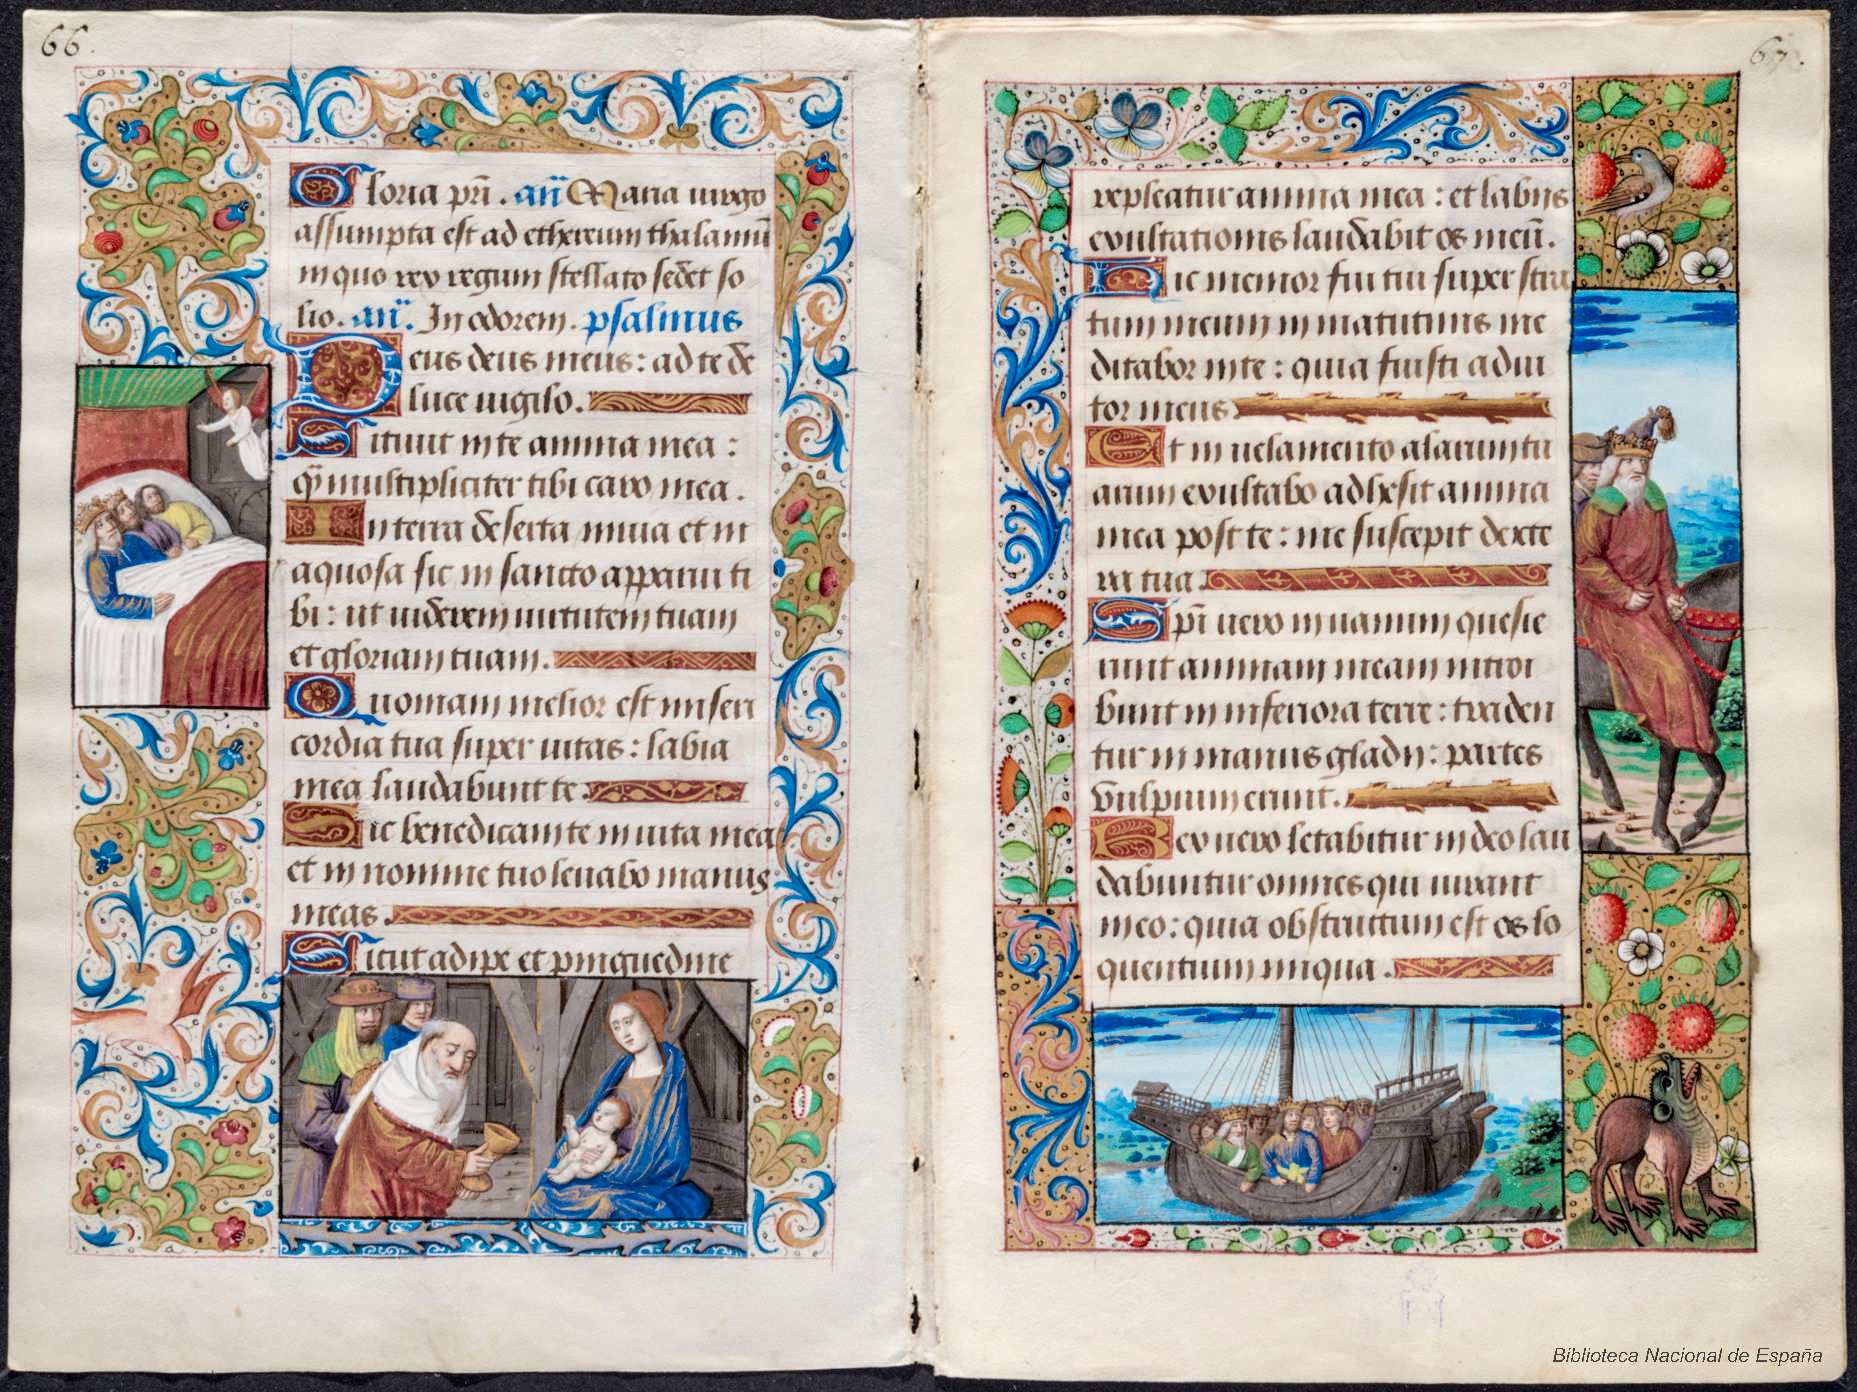 66.
Gloria pri. añ Maria uirgo
assumpta est ad ethereum thalamū
in quo rex regum stellato sedet so
lio. añ. In odorem. psalmus
Deus deus meus: ad te de
luce uigilo.
Sitiuit in te anima mea:
q̄ multipliciter tibi caro mea.
In terra deserta inuia et in
aquosa sic in sancto apparui ti
bi: ut uiderem uirtutem tuam
et gloriam tuam.
Quoniam melior est miseri
cordia tua super uitas: labia
mea laudabunt te.
Sic benedicam te in uita mea
et in nomine tuo leuabo manus
meas.
Sicut adipe et pinguedine
67.
repleatur anima mea: et labijs
exultationis laudabit os meū.
Sic memor fui tui super stra
tum meum in matutinis me
ditabor in te: quia fuisti adiu
tor meus
Et in uelamento alarum tu
arum exultabo adhesit anima
mea post te: me suscepit dexte
ra tua.
Ipi uero in uanum quesie
runt animam meam introi
bunt in inferiora terre: traden
tur in manus gladij: partes
uulpium erunt.
Rex uero letabitur in deo lau
dabuntur omnes qui iurant
in eo: quia obstructum est os lo
quentium iniqua.
Biblioteca Nacional de España